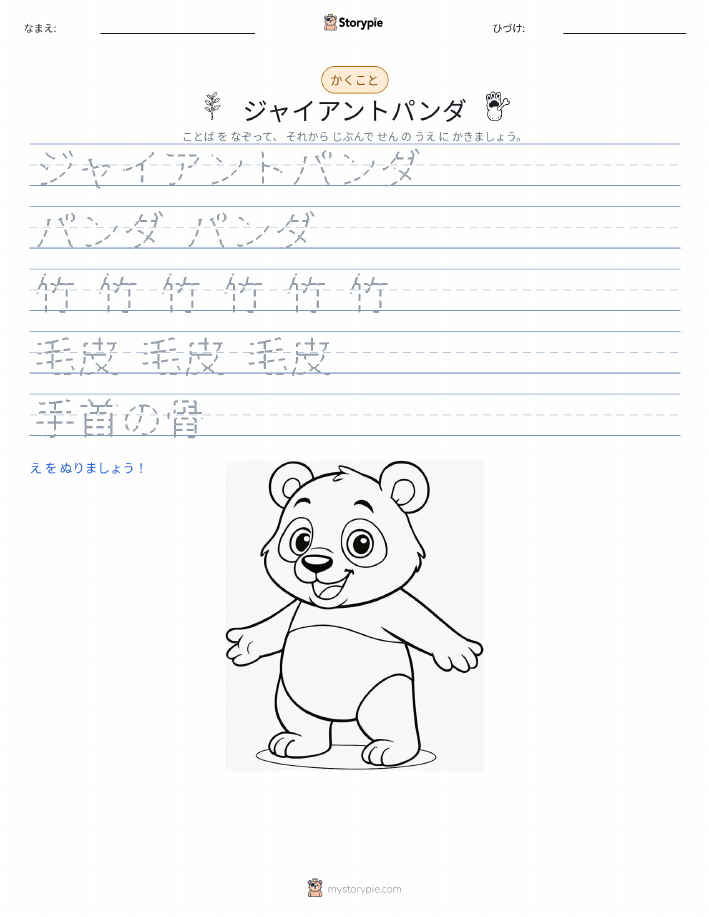 なまえ:
Storypie
ひづけ:
かくこと
ジャイアントパンダ
ことば を なぞって、 それから じぶんで せん の うえ に かきましょう。
ジャイアントパンダ
パンダ パンダ
竹 竹 竹 竹 竹 竹
毛皮 毛皮 毛皮
手首の骨
え を ぬりましょう！
mystorypie.com